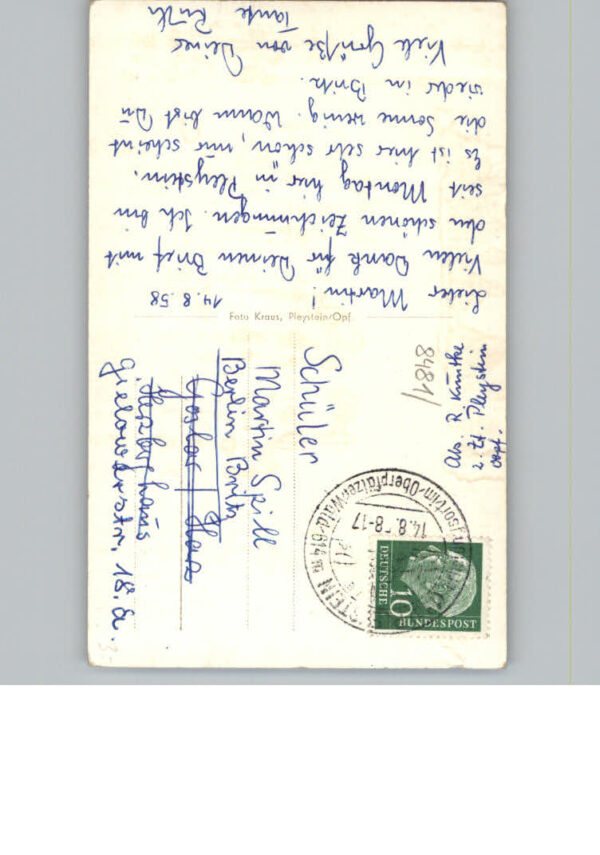 14.8.58
Lieber Martin!
Vielen Dank für Deinen Brief mit
den schönen Zeichnungen. Ich bin
seit Montag hier in Pleystein.
Es ist hier sehr schön, nur scheint
die Sonne wenig. Wann bist Du
wieder in Britz.
Viele Grüße von Deiner
Tante Ruth
Foto Kraus, Pleystein/Opf.
Abs. R
z. Zt. Pleystein
Opf.
8481/
Schüler
Martin Spill
Berlin Britz
Goslar / Harz
Gielowerstr. 18.a.
14.8.58-17
Oberpfälzer Wald 614m
DEUTSCHE
BUNDESPOST
10